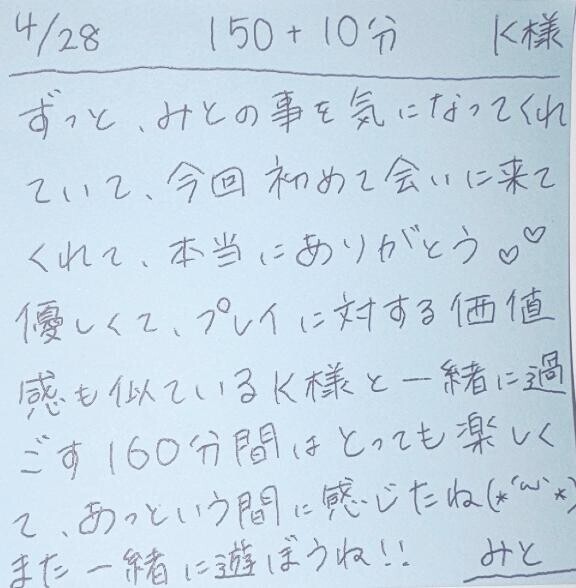 4/28 150+10分 K様
ずっと、みとの事を気になってくれ
ていて、今回初めて会いに来て
くれて、本当にありがとう♡♡
優しくて、プレイに対する価値
感も似ているK様と一緒に過
ごす160分間はとっても楽しく
て、あっという間に感じたね(*´ω`*)
また一緒に遊ぼうね!! みと